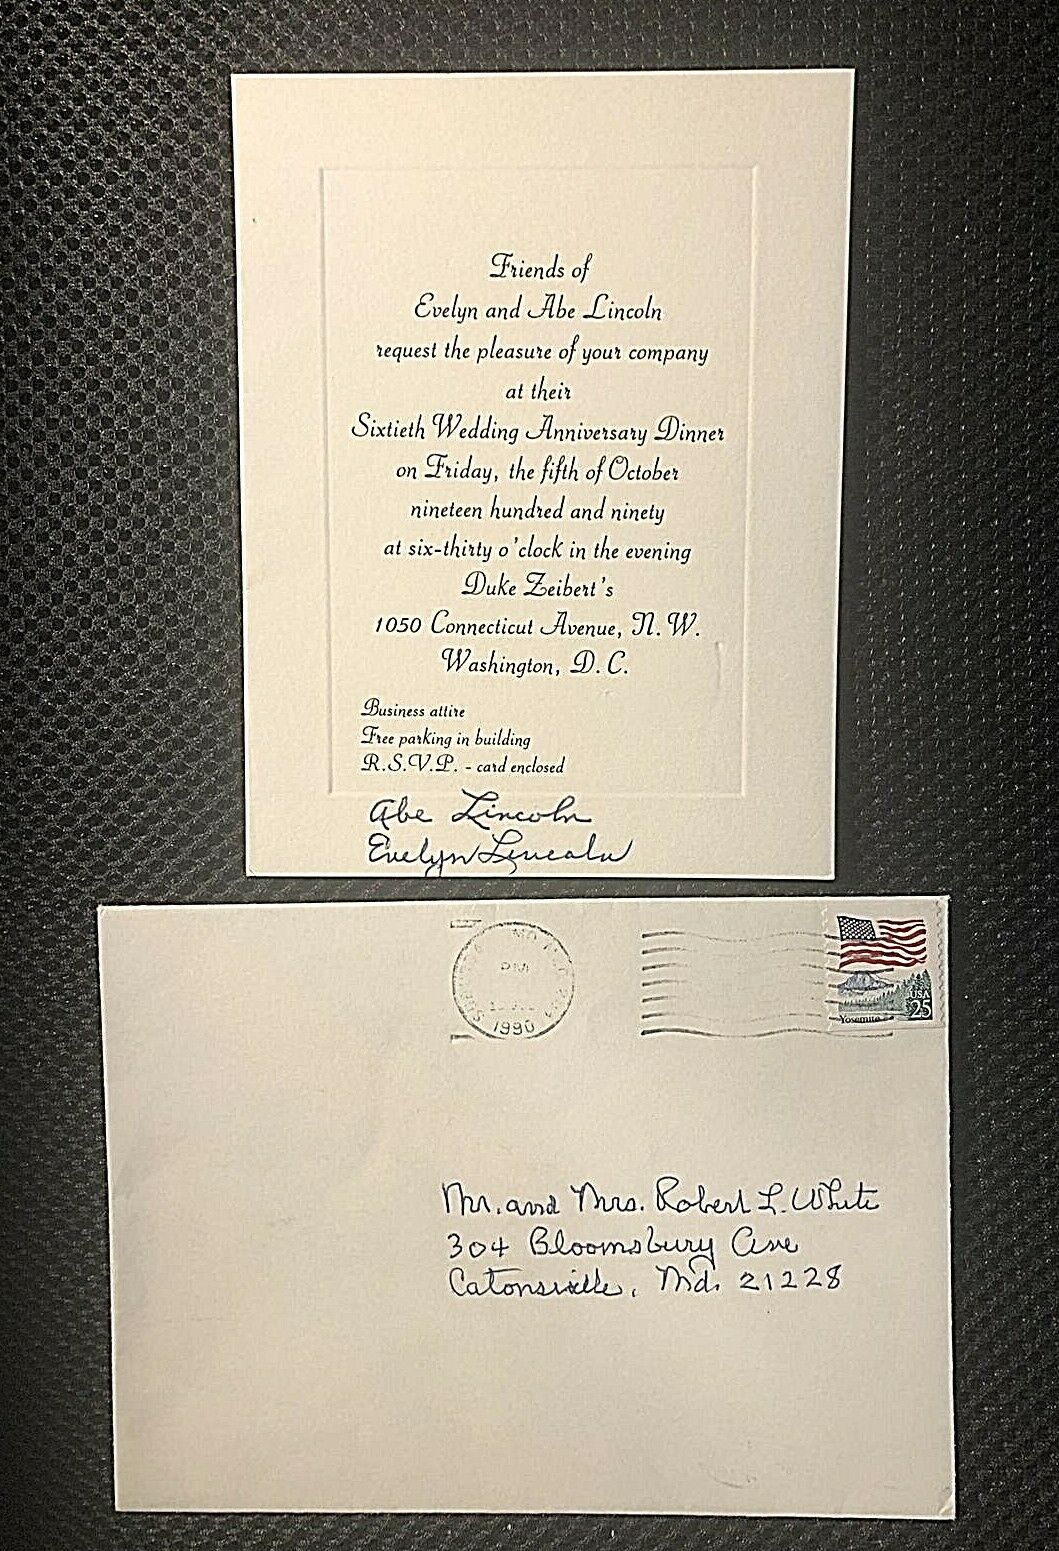 Friends of
Evelyn and Abe Lincoln
request the pleasure of your company
at their
Sixtieth Wedding Anniversary Dinner
on Friday, the fifth of October
nineteen hundred and ninety
at six-thirty o'clock in the evening
Duke Zeibert's
1050 Connecticut Avenue, N. W.
Washington, D. C.
Business attire
Free parking in building
R.S.V.P. - card enclosed
Abe Lincoln
Evelyn Lincoln
MD
PM
1990
USA
25
Yosemite
Mr. and Mrs. Robert L. White
304 Bloomsbury Ave
Catonsville, Md. 21228